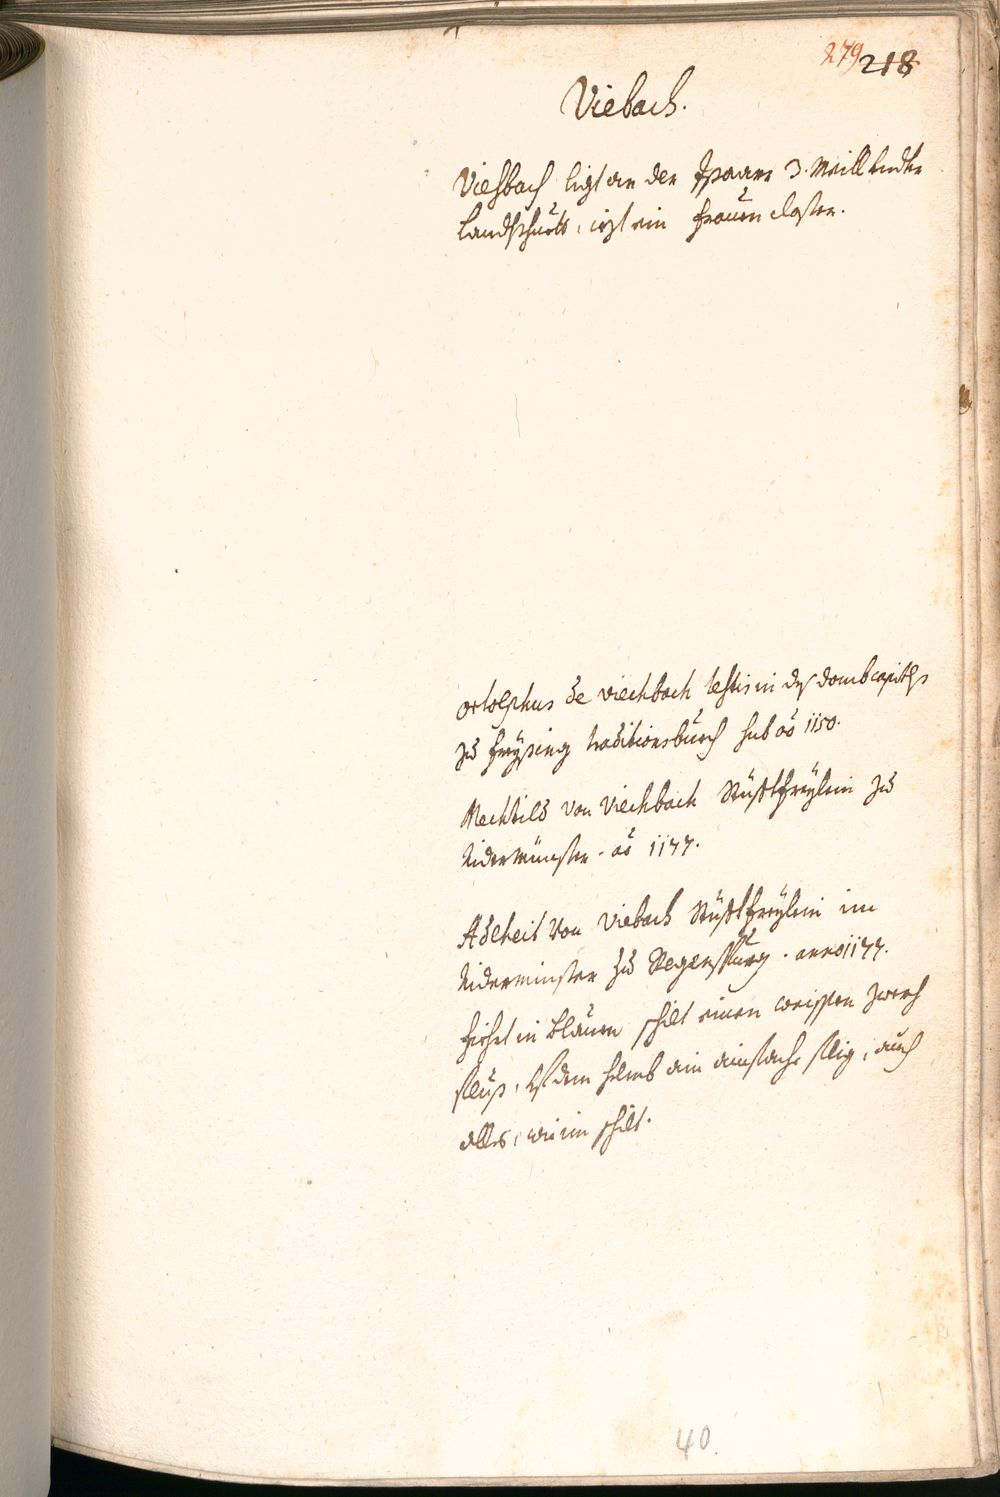 279 218
Viebach.
Viehbach ligt an der Isaar 3. Meill undter
Landtshuett, iezt ein frauen closter.
ortolphus de viechbach testis in des dombcapitls
zu freysing traditionsbuech sub ao 1150.
Mechtild von Viechbach Stüfftfreylein zu
Nidermünster. ao 1177.
Adlheit von Viebach Stüfftfreylein im
Nidermünster zu Regenspurg. anno 1177.
fiehrt in blauen schilt einen weissen zwerch
fluss, uf dem helmb ain ainfache flig, auch
alles, wie im schilt.
40